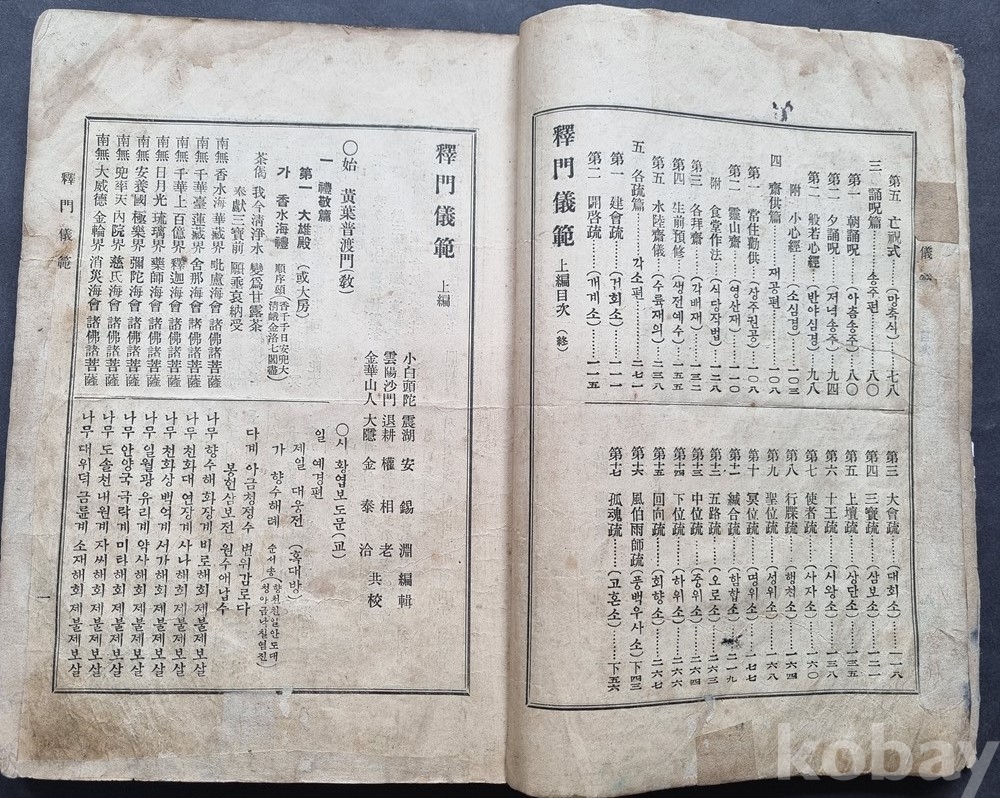 儀
第五 亡祝式………(망축식)…七八
三 誦呪篇………송주편………八〇
第一 朝誦呪……(아츰송주)…八〇
第二 夕誦呪……(저녁송주)…九四
第二 般若心經…(반야심경)…九八
附 小心經………(소심경)…一〇三
四 齋供篇………재공편………一〇八
第一 常住勸供…(상주권공)…一〇八
第二 靈山齋……(영산재)…一一〇
附 食堂作法……(식당작법)…一二八
第三 各拜齋……(각배재)…一三二
第四 生前預修…(생전예수)…一五五
第五 水陸齋儀…(수륙재의)…二三八
五 各疏篇………각소편………二七一
第一 建會疏……(건회소)…一一一
第二 開啓疏……(개계소)…一一五
釋門儀範 上編目次 (終)
第三 大會疏……(대회소)……一一八
第四 三寶疏……(삼보소)……一二一
第五 上壇疏……(상단소)……一三一
第六 十王疏……(시왕소)……一三八
第七 使者疏……(사자소)……一六〇
第八 行牒疏……(행첩소)……一六四
第九 聖位疏……(성위소)……一六八
第十 冥位疏……(명위소)……一七七
第十一 緘合疏……(함합소)……二一九
第十二 五路疏……(오로소)……二五八
第十三 中位疏……(중위소)……二六四
第十四 下位疏……(하위소)……二六六
第十五 回向疏……(회향소)……二六七
第十六 風伯雨師疏(풍백우사소)下四三
第十七 孤魂疏……(고혼소)…下五六
釋門儀範 上編
小白頭陀 震湖 安錫淵 編輯
雲陽沙門 退耕 權相老
金華山人 大隱 金泰洽 共校
〇始 黃葉普渡門(敎)
一 禮敬篇
第一 大雄殿 (或大房)
가 香水海禮 順序頌
茶偈 我今淸淨水 變爲甘露茶
奉獻三寶前 願垂哀納受
南無 香水海 華藏界 毗盧海會 諸佛諸菩薩
南無 千華臺 蓮藏界 舍那海會 諸佛諸菩薩
南無 千華上 百億界 釋迦海會 諸佛諸菩薩
南無 日月光 琉璃界 藥師海會 諸佛諸菩薩
南無 安養國 極樂界 彌陀海會 諸佛諸菩薩
南無 兜率天 內院界 慈氏海會 諸佛諸菩薩
南無 大威德 金輪界 消災海會 諸佛諸菩薩
〇시 황엽보도문(교)
일 예경편
제일 대웅전 (혹대방)
가 향수해례 순서송
다게 아금청정수 변위감로다
봉헌삼보전 원수애납수
나무 향수해 화장게 비로해회 제불제보살
나무 천화대 연장게 사나해회 제불제보살
나무 천화상 백억게 서가해회 제불제보살
나무 일월광 유리게 약사해회 제불제보살
나무 안양국 극락게 미타해회 제불제보살
나무 도솔천 내원게 자씨해회 제불제보살
나무 대위덕 금륜게 소재해회 제불제보살
釋門儀範
一
kobay